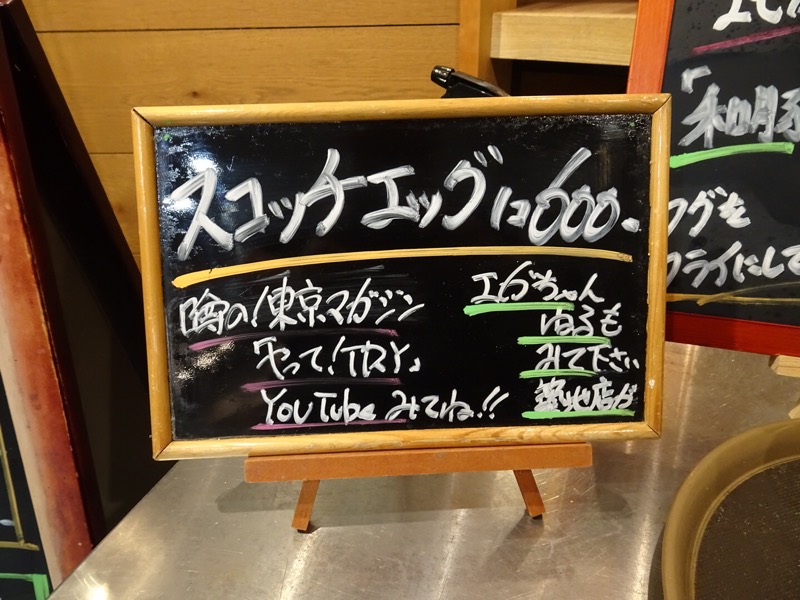 スコッチエッグ ¥600-
噂の!東京マガジン
やって!TRY
YouTube みてね!!
エガちゃん
みて下さい
築地店が
「和
フグを
フライにして